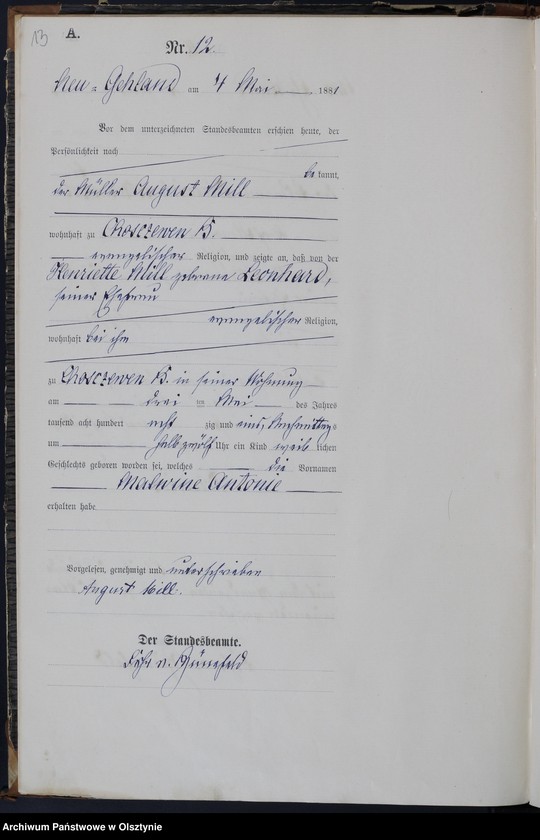 13
A.
Nr. 12.
Neu-Gehland am 4 Mai 1881
Vor dem unterzeichneten Standesbeamten erschien heute, der
Persönlichkeit nach
bekannt,
der Müller August Mill
wohnhaft zu Choszewen B.
evangelischer Religion, und zeigte an, daß von der
Henriette Mill geborene Leonhard,
seiner Ehefrau
evangelischer Religion,
wohnhaft bei ihm
zu Choszewen B. in seiner Wohnung
am drei ten Mai des Jahres
tausend acht hundert acht zig und eins, Nachmittags
um halb zwölf Uhr ein Kind weib lichen
Geschlechts geboren worden sei, welches die Vornamen
Malwine Antonie
erhalten habe
Vorgelesen, genehmigt und unterschrieben
August Mill.
Der Standesbeamte.
Archiwum Państwowe w Olsztynie